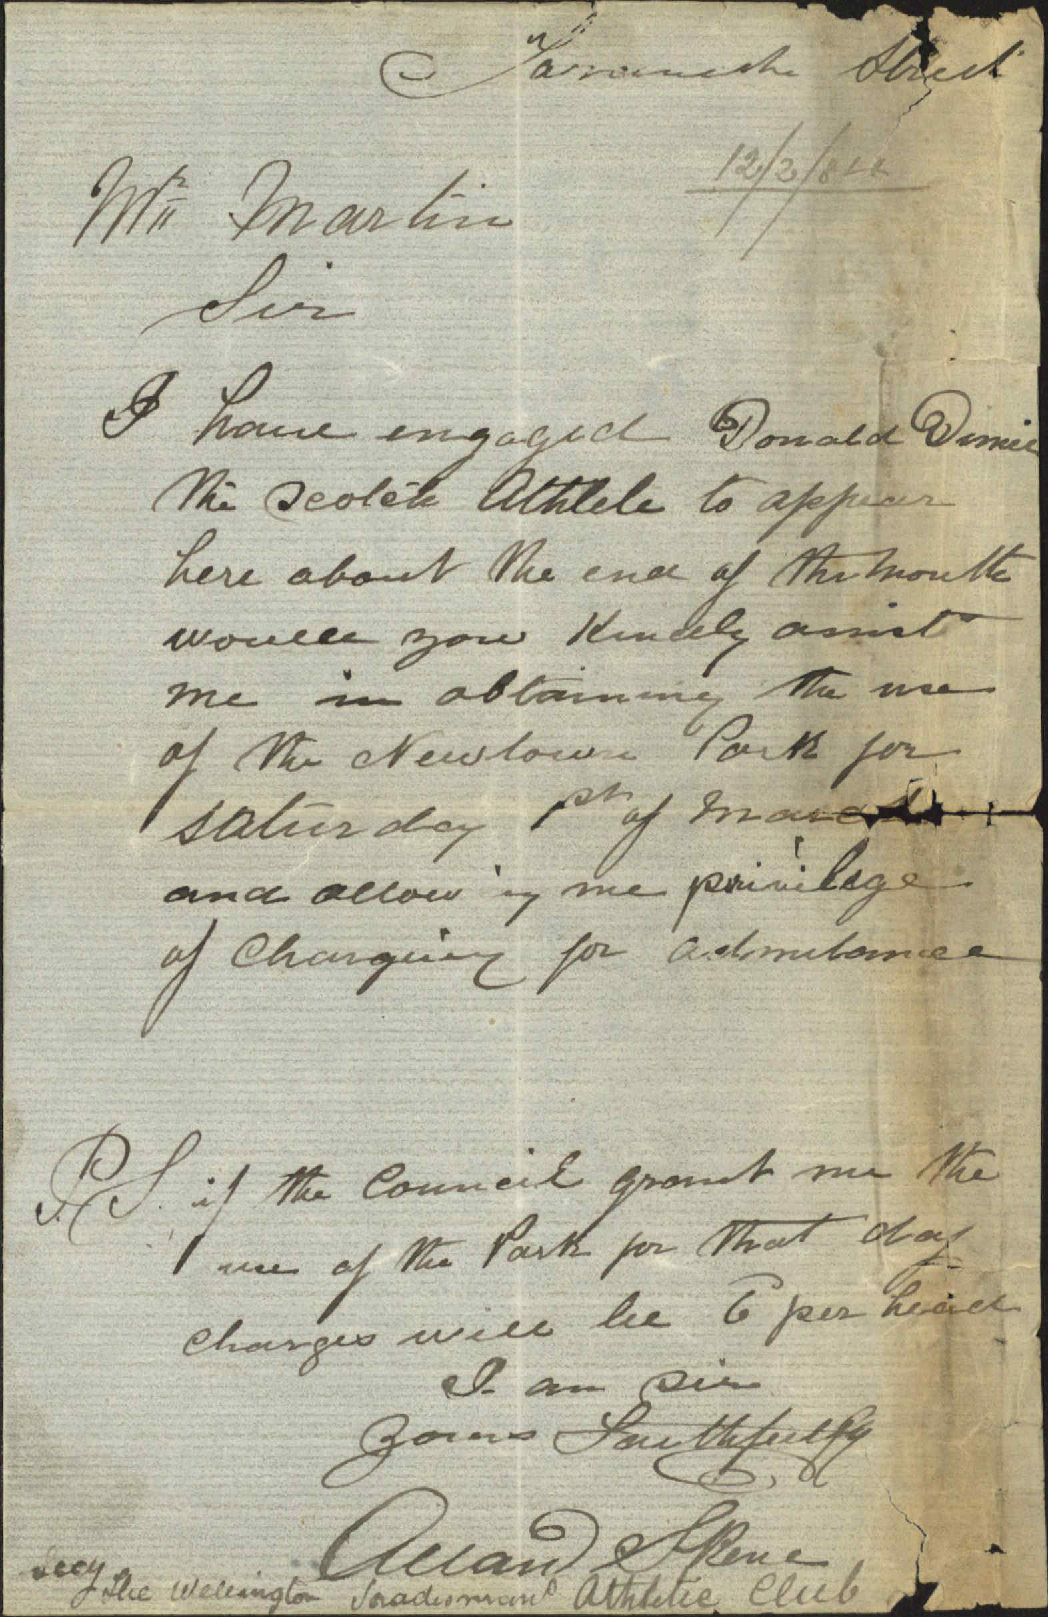 Taranaki Street
12/2/84
Mr Martin
Sir
I have engaged Donald Dinnie
the Scotch Athlete to appear
here about the end of the month
would you Kindly assist
me in obtaining the use
of the Newtown Park for
saturday 1st of March
and allowing me privilege
of Charging for admittance
P.S. if the Council grant me the
use of the Park for that day
charges will be 6 per head
I am sir
yours Faithfully
Allan Skene
Secy
the Wellington Tradesmans Athletic Club